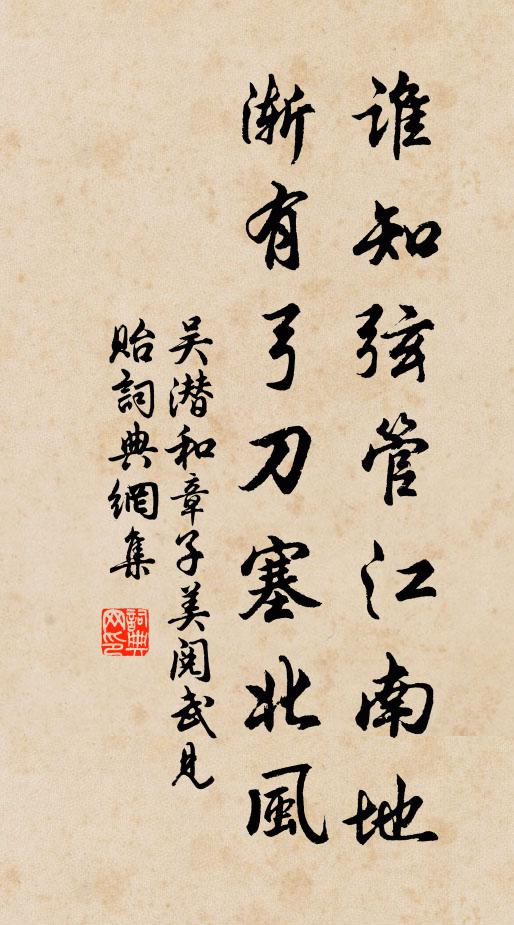 誰知弦管江南地
漸有弓刀塞北風
吴潜和章子美阅武見
貽詞典網集
詞典
网印